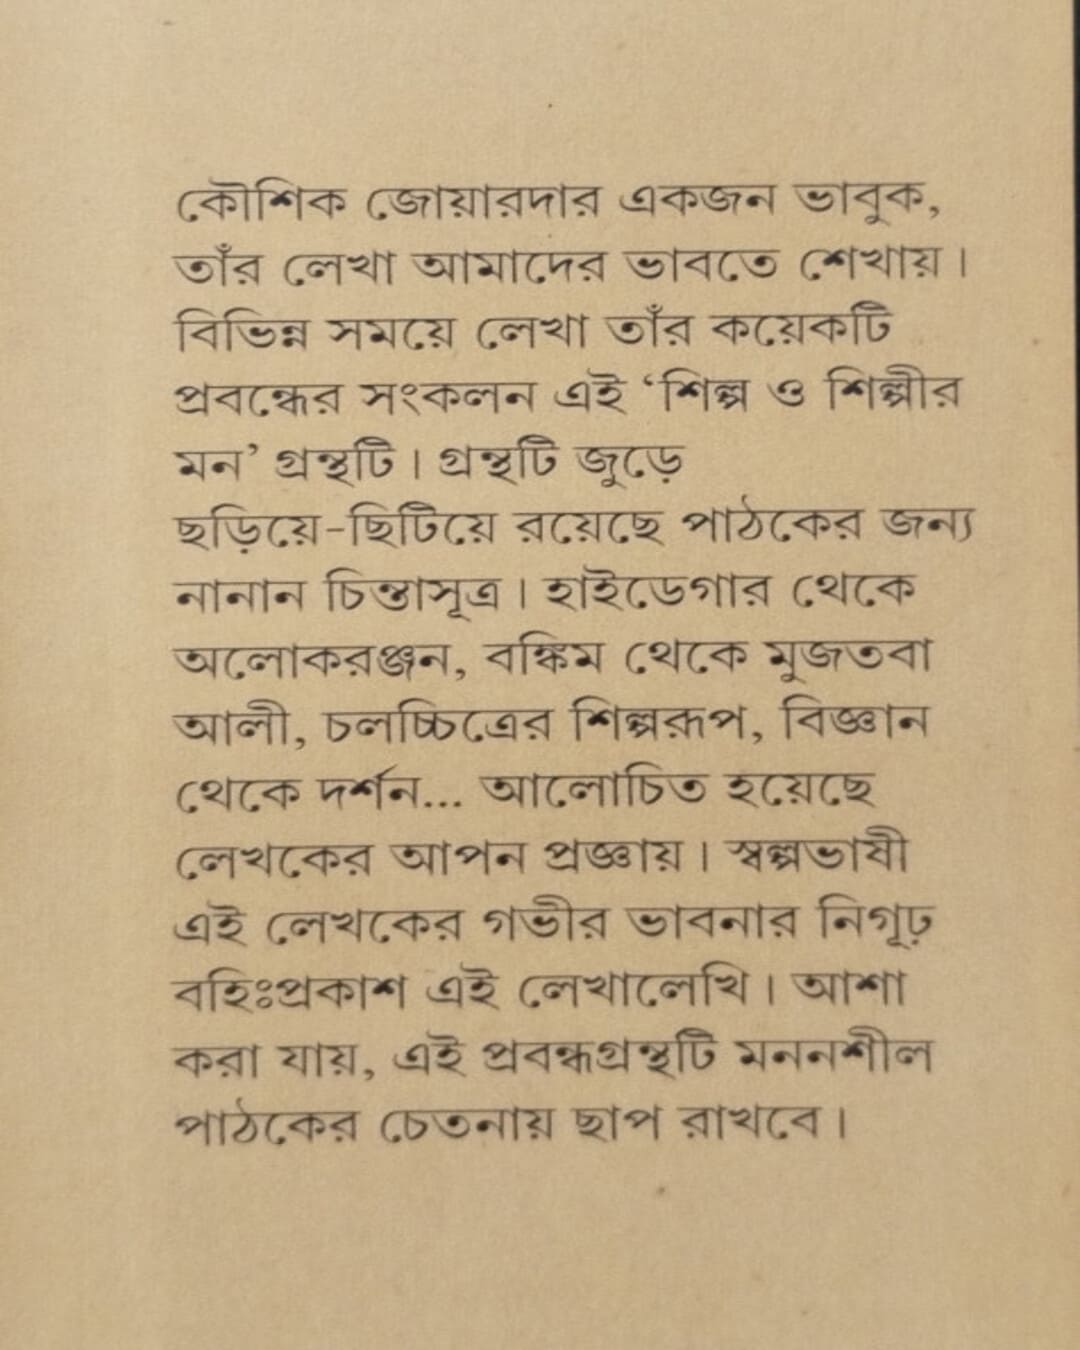 কৌশিক জোয়ারদার একজন ভাবুক,
তাঁর লেখা আমাদের ভাবতে শেখায়।
বিভিন্ন সময়ে লেখা তাঁর কয়েকটি
প্রবন্ধের সংকলন এই ‘শিল্প ও শিল্পীর
মন’ গ্রন্থটি। গ্রন্থটি জুড়ে
ছড়িয়ে-ছিটিয়ে রয়েছে পাঠকের জন্য
নানান চিন্তাসূত্র। হাইডেগার থেকে
অলোকরঞ্জন, বঙ্কিম থেকে মুজতবা
আলী, চলচ্চিত্রের শিল্পরূপ, বিজ্ঞান
থেকে দর্শন... আলোচিত হয়েছে
লেখকের আপন প্রজ্ঞায়। স্বল্পভাষী
এই লেখকের গভীর ভাবনার নিগূঢ়
বহিঃপ্রকাশ এই লেখালেখি। আশা
করা যায়, এই প্রবন্ধগ্রন্থটি মননশীল
পাঠকের চেতনায় ছাপ রাখবে।